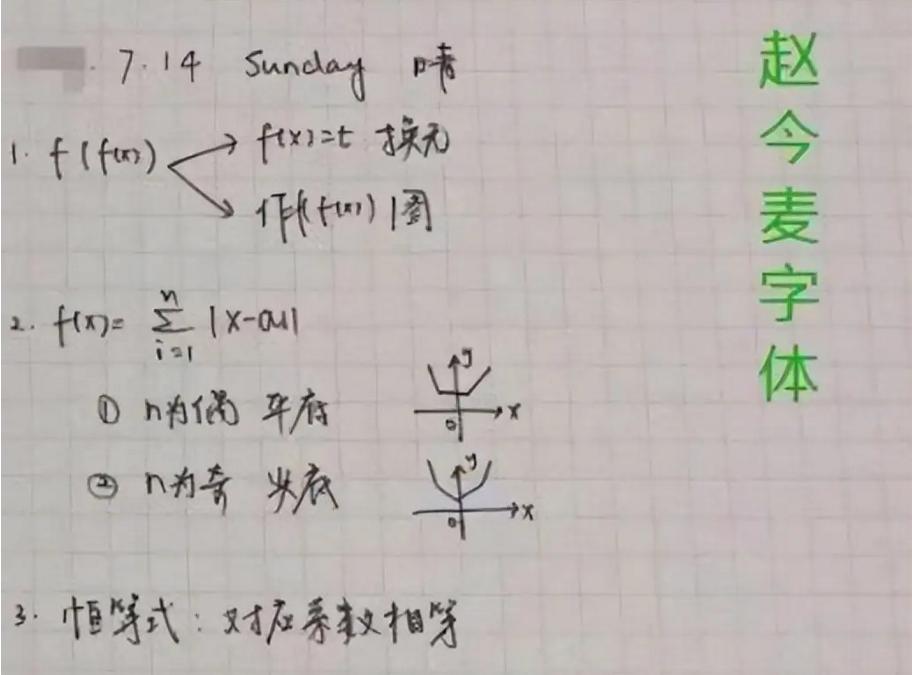 7.14 Sunday 晴
1. f(f(x))
f(x)=t 换元
作f(f(x))图
2. f(x)= n∑i=1 |x-ai|
① n为偶 平底
y
0 x
② n为奇 尖底
y
0 x
3. 恒等式：对应系数相等
赵今麦字体